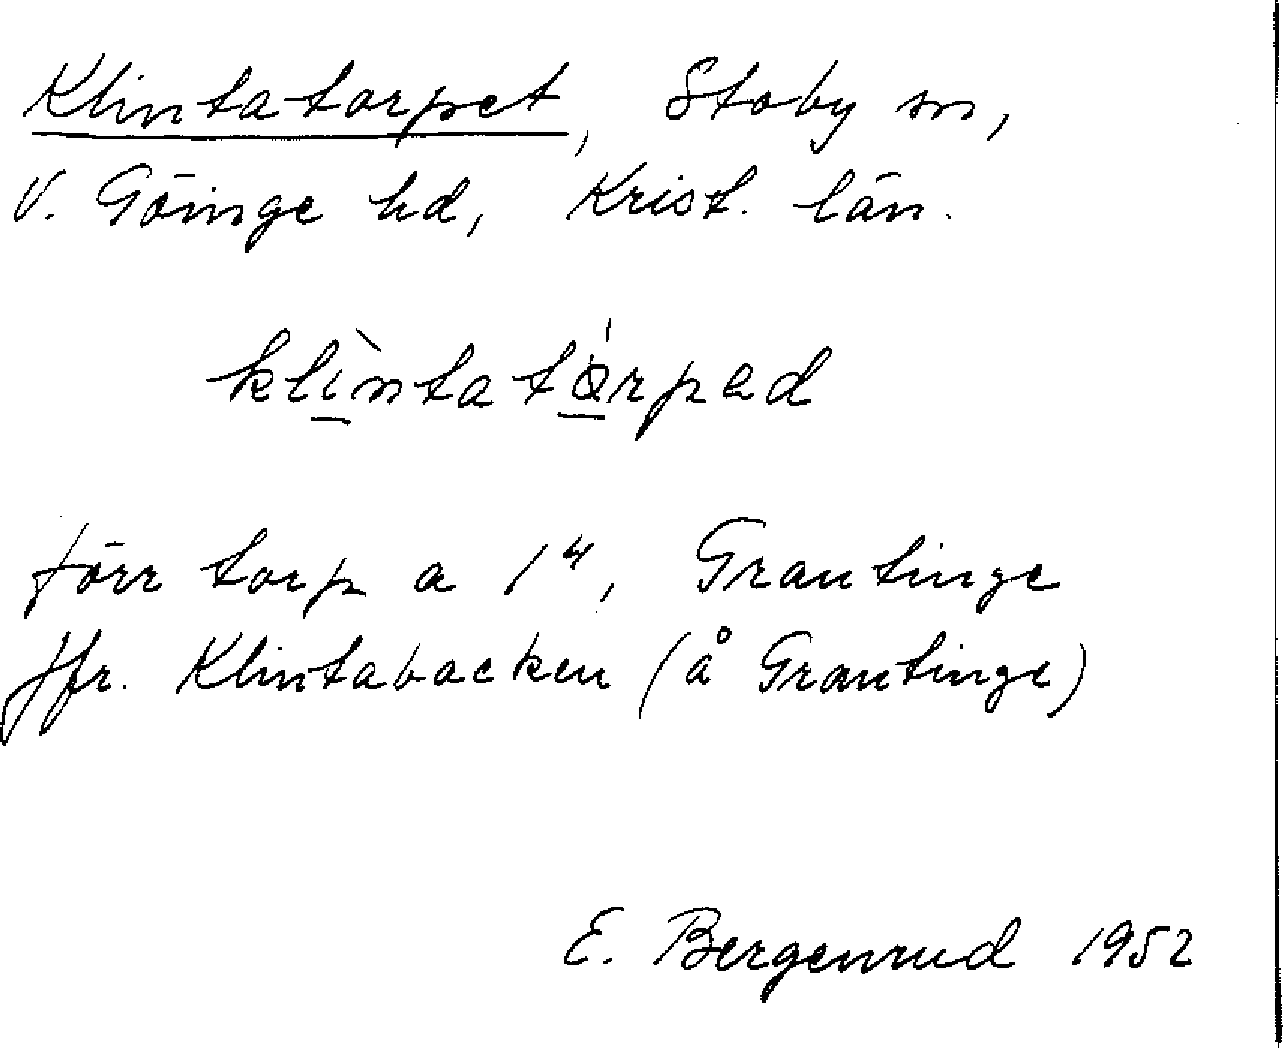 Klintatorpet, Stoby sn,
V. Göinge hd, Krist. län.
klìntatǫ́rpəd
förr torp a 1⁴, Grantinge
Jfr. Klintabacken (å Grantinge)
E. Bergenrud 1952